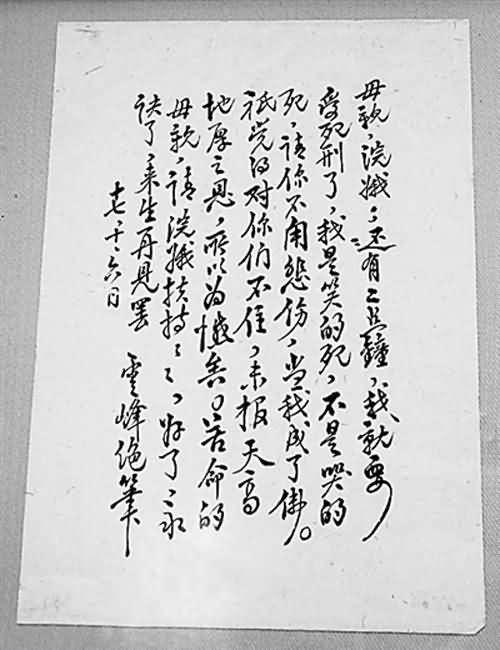 母親，浣娥，還有二点鐘，我就要
受死刑了，我是笑的死，不是哭的
死，請你不用悲伤，当我成了佛。
祇覚得对你们不住，未报天高
地厚之恩，所以为憾矣。苦命的
母親，請浣娥扶持，好了，永
訣了，来生再見罢
十七、十、六日 雲峰绝筆